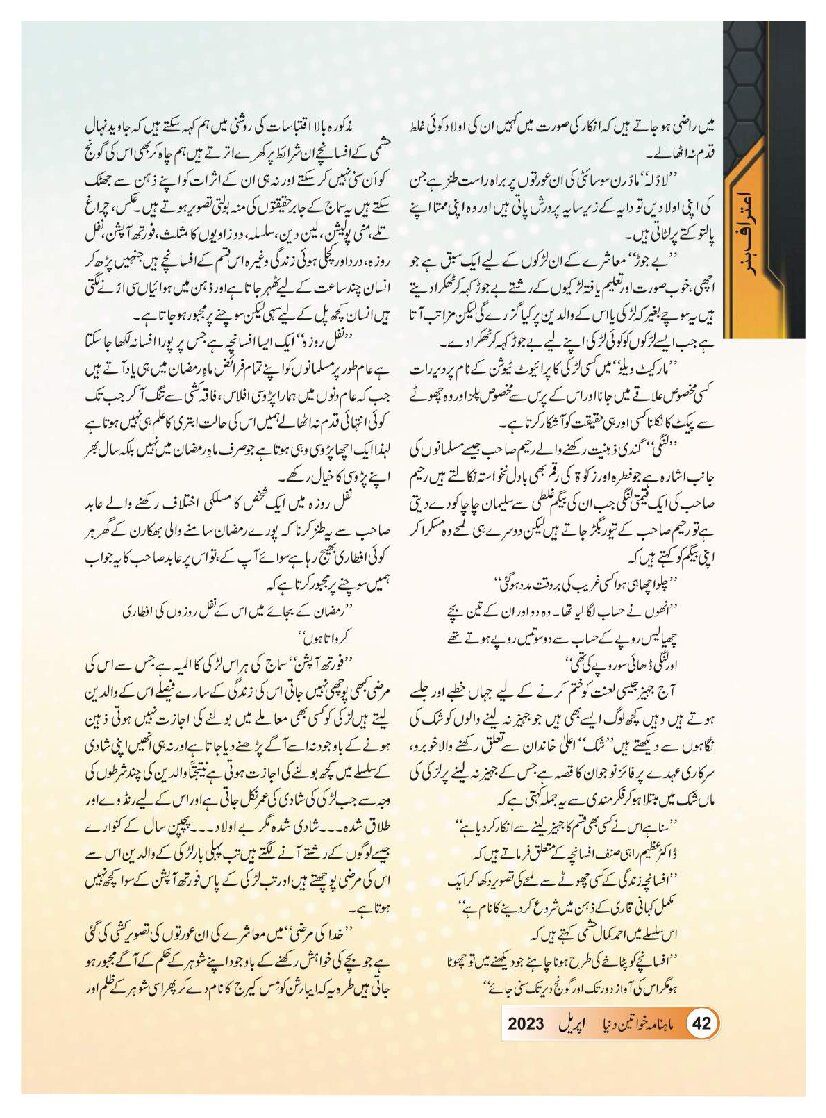 اعتراف ہنر
میں راضی ہو جاتے ہیں کہ انکار کی صورت میں کہیں ان کی اولاد کوئی غلط
قدم نہ اٹھا لے۔
’’لاڈل‘‘ ماڈرن سوسائٹی کی ان عورتوں پر براہ راست طنز ہے جن
کی اپنی اولادیں تو دایہ کے زیر سایہ پرورش پاتی ہیں اور وہ اپنی ممتا اپنے
پالتو کتے پر لٹاتی ہیں۔
’’بے جوڑ‘‘ معاشرے کے ان لڑکوں کے لیے ایک سبق ہے جو
اچھی، خوب صورت اور تعلیم یافتہ لڑکیوں کے رشتے بے جوڑ کہہ کر ٹھکرا دیتے
ہیں یہ سوچے بغیر کہ لڑکی یا اس کے والدین پر کیا گزرے گی لیکن مزا تب آتا
ہے جب ایسے لڑکوں کو کوئی لڑکی اپنے لیے بے جوڑ کہہ کر ٹھکرا دے۔
’’مارکیٹ ویلیو‘‘ میں کسی لڑکی کا پرائیوٹ ٹیوشن کے نام پر دیر رات
کسی مخصوص علاقے میں جانا اور اس کے پرس سے مخصوص پلز اور وہ چھوٹے
سے پیکٹ کا نکلنا کسی اور ہی حقیقت کو آشکار کرتا ہے۔
’’لنگی‘‘ گندی ذہنیت رکھنے والے رحیم صاحب جیسے مسلمانوں کی
جانب اشارہ ہے جو فطرہ اور زکوۃ کی رقم بھی بادل نخواستہ نکالتے ہیں رحیم
صاحب کی ایک قیمتی لنگی جب ان کی بیگم غلطی سے سلیمان چاچا کو دے دیتی
ہے تو رحیم صاحب کے تیور بگڑ جاتے ہیں لیکن دوسرے ہی لمحے وہ مسکرا کر
اپنی بیگم کو کہتے ہیں کہ
’’چلو اچھا ہی ہوا کسی غریب کی بر وقت مدد ہو گئی‘‘
’’انھوں نے حساب لگا لیا تھا۔ وہ دو اور ان کے تین بچے
چھیالیس روپے کے حساب سے دو سو تیس روپے ہوتے تھے
اور لنگی ڈھائی سو روپے کی تھی‘‘
آج جہیز جیسی لعنت کو ختم کرنے کے لیے جہاں خطبے اور جلسے
ہوتے ہیں وہیں کچھ لوگ ایسے بھی ہیں جو جہیز نہ لینے والوں کو شک کی
نگاہوں سے دیکھتے ہیں ’’شک‘‘ اعلیٰ خاندان سے تعلق رکھنے والا خوبرو،
سرکاری عہدے پر فائز نوجوان کا قصہ ہے جس کے جہیز نہ لینے پر لڑکی کی
ماں شک میں مبتلا ہو کر فکر مندی سے یہ جملہ کہتی ہے کہ
’’سنا ہے اس نے کسی بھی قسم کا جہیز لینے سے انکار کر دیا ہے‘‘
ڈاکٹر عظیم راہی صنف افسانچہ کے متعلق فرماتے ہیں کہ
’’افسانچہ زندگی کے کسی چھوٹے سے لمحے کی تصویر دکھا کر ایک
مکمل کہانی قاری کے ذہن میں شروع کر دینے کا نام ہے‘‘
اس سلسلے میں احمد کمال حشمی کہتے ہیں کہ
’’افسانچے کو پٹاخے کی طرح ہونا چاہئے جو دیکھنے میں تو چھوٹا
ہو مگر اس کی آواز دور تک اور گونج دیر تک سنی جائے‘‘
مذکورہ بالا اقتباسات کی روشنی میں ہم کہہ سکتے ہیں کہ جاوید نہال
حشمی کے افسانچے ان شرائط پر کھرے اترتے ہیں ہم چاہ کر بھی اس کی گونج
کو اَن سنی نہیں کر سکتے اور نہ ہی ان کے اثرات کو اپنے ذہن سے جھٹک
سکتے ہیں یہ سماج کے جابر حقیقتوں کی منہ بولتی تصویر ہوتے ہیں۔ عکس، چراغ
تلے، منی پولیشن، لین دین، سلسلہ، دو زاویوں کا مثلث، فورتھ آپشن، نفل
روزہ، درد اور کچلی ہوئی زندگی وغیرہ اس قسم کے افسانچے ہیں جنہیں پڑھ کر
انسان چند ساعت کے لیے ٹھہر جاتا ہے اور ذہن میں ہوائیاں سی اڑنے لگتی
ہیں انسان کچھ پل کے لیے سہی لیکن سوچنے پر مجبور ہو جاتا ہے۔
’’نفل روزہ‘‘ ایک ایسا افسانچہ ہے جس پر پورا افسانہ لکھا جا سکتا
ہے عام طور پر مسلمانوں کو اپنے تمام فرائض ماہِ رمضان میں ہی یاد آتے ہیں
جب کہ عام دنوں میں ہمارا پڑوسی افلاس، فاقہ کشی سے تنگ آ کر جب تک
کوئی انتہائی قدم نہ اٹھا لے ہمیں اس کی حالت ابتری کا علم ہی نہیں ہوتا ہے
لہٰذا ایک اچھا پڑوسی وہی ہوتا ہے جو صرف ماہِ رمضان میں نہیں بلکہ سال بھر
اپنے پڑوسی کا خیال رکھے۔
نفل روزہ میں ایک شخص کا مسلکی اختلاف رکھنے والے عابد
صاحب سے یہ طنز کرنا کہ پورے رمضان سامنے والی بھکارن کے گھر ہر
کوئی افطاری بھیج رہا ہے سوائے آپ کے، تو اس پر عابد صاحب کا یہ جواب
ہمیں سوچنے پر مجبور کرتا ہے کہ
’’رمضان کے بجائے میں اس کے نفل روزوں کی افطاری
کرواتا ہوں‘‘
’’فورتھ آپشن‘‘ سماج کی ہر اس لڑکی کا المیہ ہے جس سے اس کی
مرضی کبھی پوچھی نہیں جاتی اس کی زندگی کے سارے فیصلے اس کے والدین
لیتے ہیں لڑکی کو کسی بھی معاملے میں بولنے کی اجازت نہیں ہوتی ذہین
ہونے کے باوجود نہ اسے آگے پڑھنے دیا جاتا ہے اور نہ ہی انھیں اپنی شادی
کے سلسلے میں کچھ بولنے کی اجازت ہوتی ہے نتیجتاً والدین کی چند شرطوں کی
وجہ سے جب لڑکی کی شادی کی عمر نکل جاتی ہے اور اس کے لیے رنڈوے اور
طلاق شدہ۔۔۔شادی شدہ مگر بے اولاد۔۔۔پچپن سال کے کنوارے
جیسے لوگوں کے رشتے آنے لگتے ہیں تب پہلی بار لڑکی کے والدین اس سے
اس کی مرضی پوچھتے ہیں اور تب لڑکی کے پاس فورتھ آپشن کے سوا کچھ نہیں
ہوتا ہے۔
’’خدا کی مرضی‘‘ میں معاشرے کی ان عورتوں کی تصویر کشی کی گئی
ہے جو بچے کی خواہش رکھنے کے باوجود اپنے شوہر کے حکم کے آگے مجبور ہو
جاتی ہیں طرہ یہ کہ ایبارشن کو مِس کیرج کا نام دے کر پھر اسی شوہر کے ظلم اور
42 ماہنامہ خواتین دنیا اپریل 2023